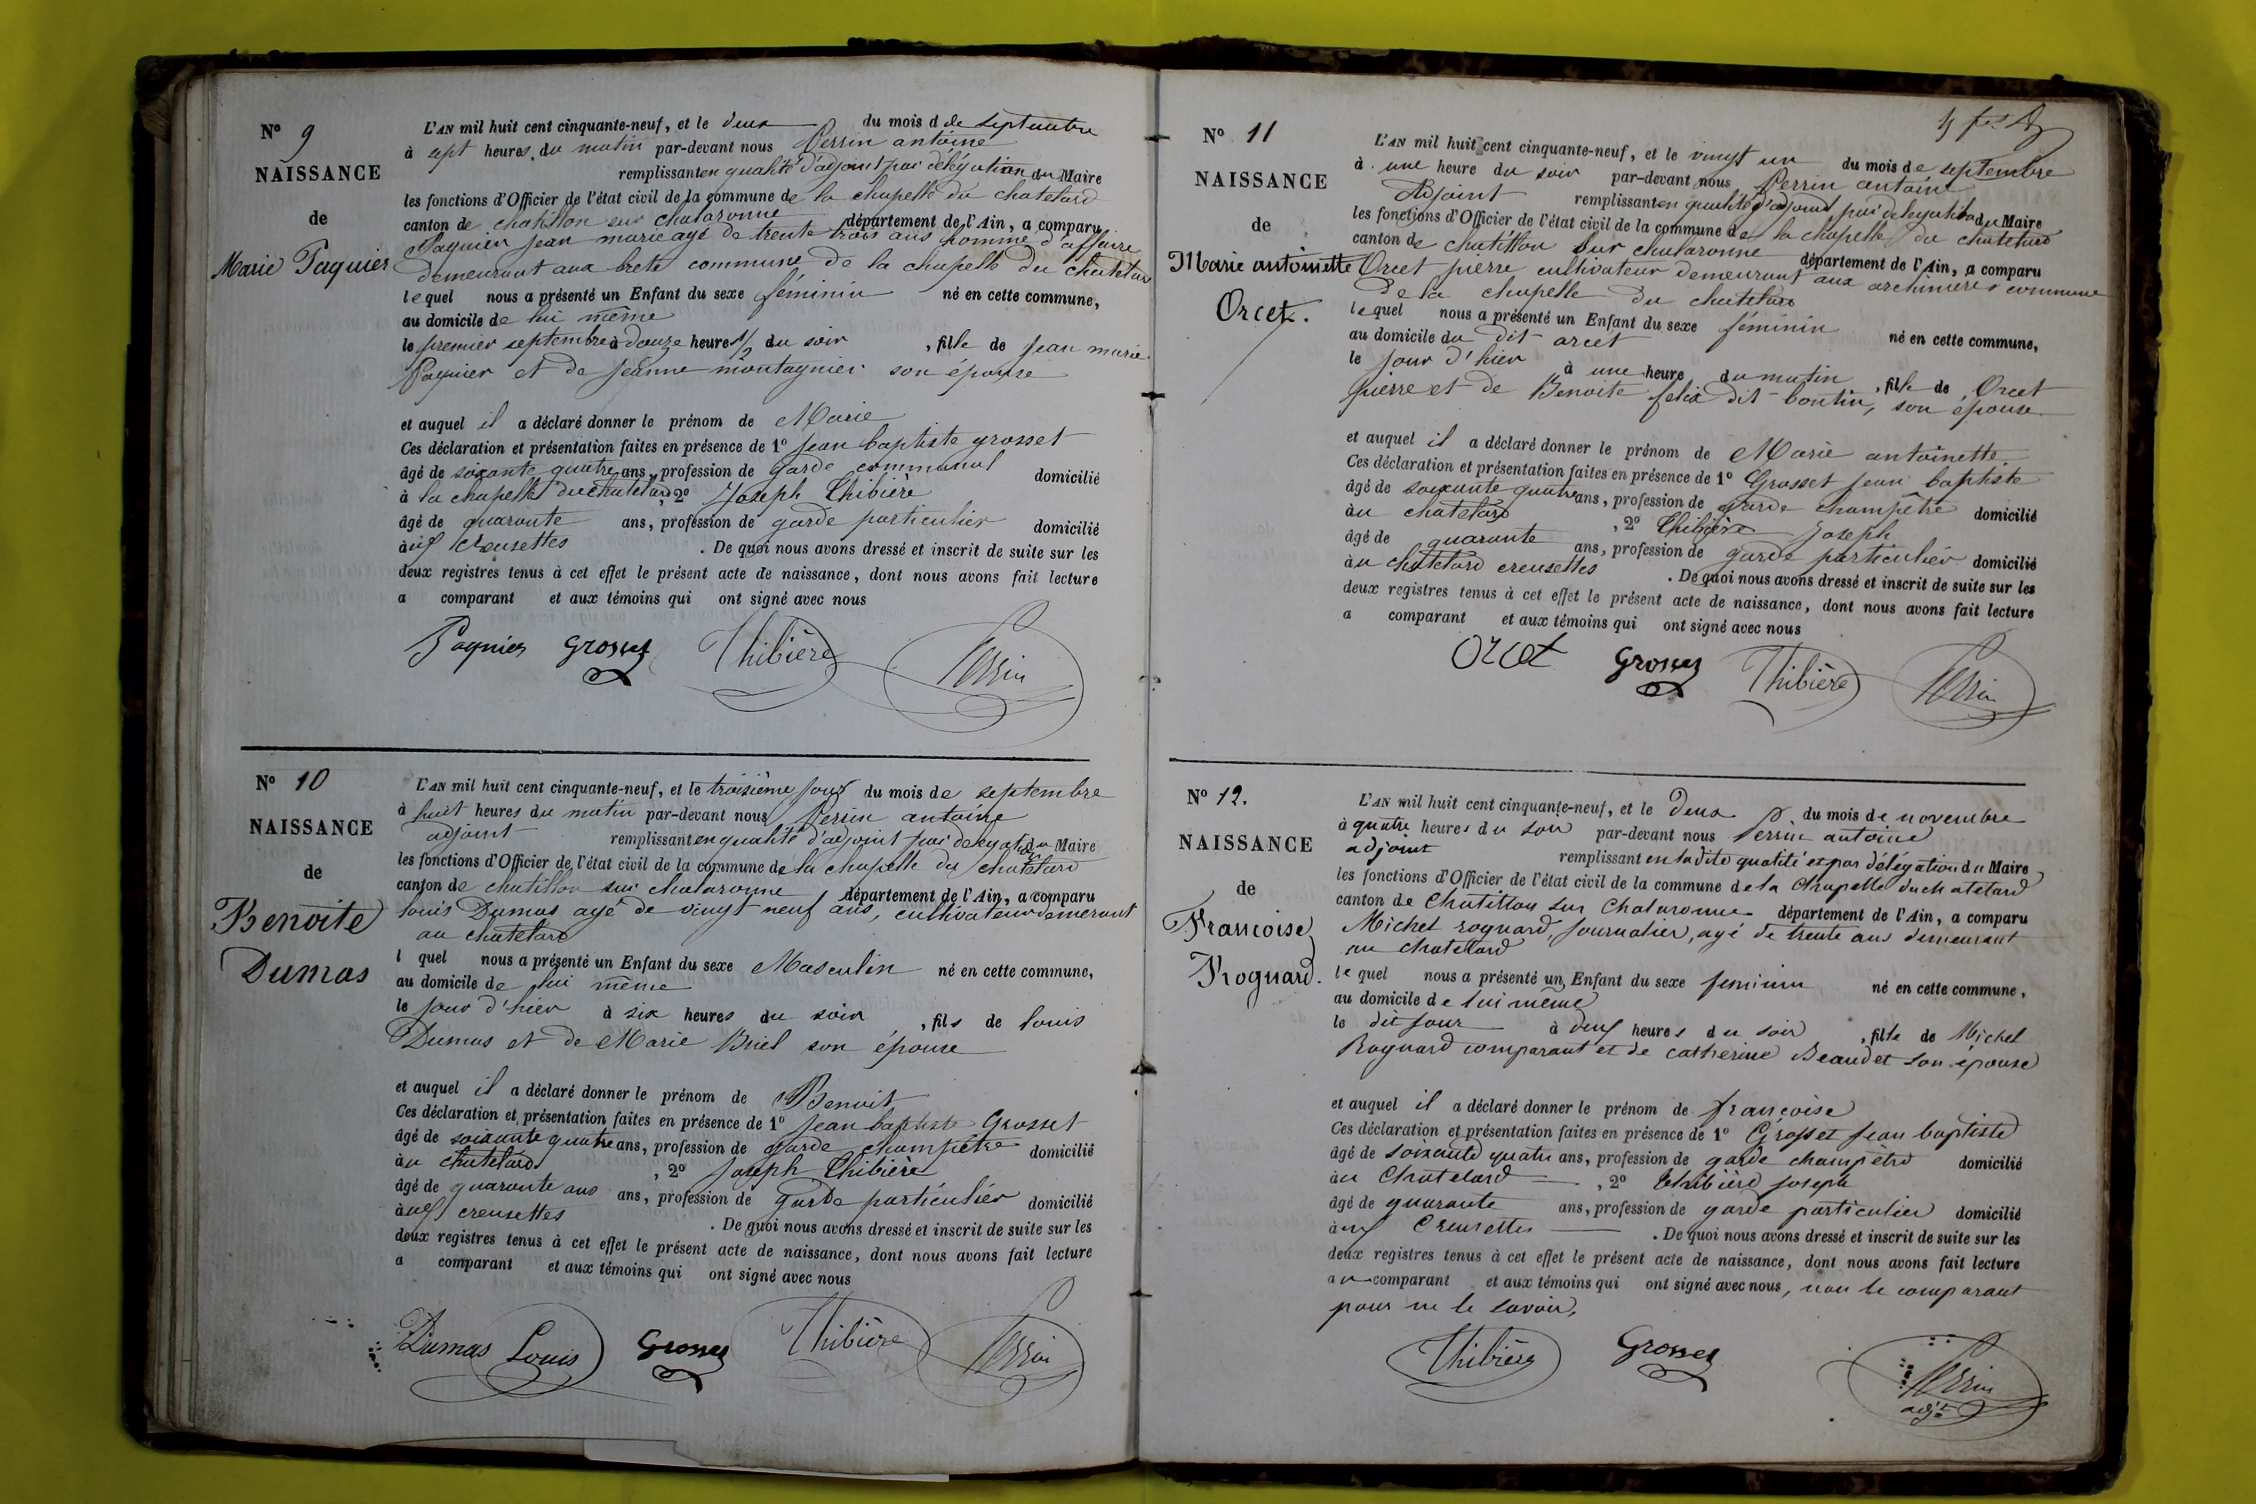 N° 9
NAISSANCE
de
Marie Paquier
L'AN mil huit cent cinquante-neuf, et le deux du mois d de septembre
à sept heures du matin par-devant nous Perrin antoine
remplissant en qualité d'adjoint par délégation du Maire
les fonctions d'Officier de l'état civil de la commune de la chapelle du chatelard
canton de chatillon sur chalaronne département de l'Ain, a comparu
Paquier jean marie agé de trente trois ans homme d'affaire
demeurant aux brets commune de la chapelle du chatelard
lequel nous a présenté un Enfant du sexe féminin né en cette commune,
au domicile de lui même
le premier septembre à douze heures 1/2 du soir, fille de jean marie
Paquier et de jeanne montagnier son épouse
et auquel il a déclaré donner le prénom de Marie
Ces déclaration et présentation faites en présence de 1° jean baptiste grosset
âgé de soixante quatre ans, profession de garde communal domicilié
à la chapelle du chatelard, 2° Joseph Thibière
âgé de quarante ans, profession de garde particulier domicilié
aux creusettes. De quoi nous avons dressé et inscrit de suite sur les
deux registres tenus à cet effet le présent acte de naissance, dont nous avons fait lecture
a comparant et aux témoins qui ont signé avec nous
Paquier Grosset Thibière Perrin
N° 10
NAISSANCE
de
Benoite
Dumas
L'AN mil huit cent cinquante-neuf, et le troisième jour du mois de septembre
à huit heures du matin par-devant nous Perrin antoine
adjoint remplissant en qualité d'adjoint par delegation du Maire
les fonctions d'Officier de l'état civil de la commune de la chapelle du chatelard
canton de chatillon sur chalaronne département de l'Ain, a comparu
louis Dumas agé de vingt neuf ans, cultivateur demeurant
au chatelard
l quel nous a présenté un Enfant du sexe Masculin né en cette commune,
au domicile de lui même
le jour d'hier à six heures du soir, fils de louis
Dumas et de Marie Briel son épouse
et auquel il a déclaré donner le prénom de Benoit
Ces déclaration et présentation faites en présence de 1° jean baptiste Grosset
âgé de soixante quatre ans, profession de garde champêtre domicilié
au chatelard, 2° Joseph Thibière
âgé de quarante ans ans, profession de garde particulier domicilié
aux creusettes. De quoi nous avons dressé et inscrit de suite sur les
deux registres tenus à cet effet le présent acte de naissance, dont nous avons fait lecture
a comparant et aux témoins qui ont signé avec nous
Dumas Louis Grosset Thibière Perrin
N° 11
NAISSANCE
de
Marie antoinette
Orcet.
L'AN mil huit cent cinquante-neuf, et le vingt un du mois de septembre
à une heure du soir par-devant nous Perrin antoine
Adjoint remplissant en qualité d'adjoint par delegation du Maire
les fonctions d'Officier de l'état civil de la commune de la chapelle du chatelard
canton de chatillon sur chalaronne département de l'Ain, a comparu
Orcet pierre cultivateur demeurant aux archinieres commune
de la chapelle du chatelard
lequel nous a présenté un Enfant du sexe féminin né en cette commune,
au domicile du dit orcet
le jour d'hier à une heure du matin, fille de Orcet
pierre et de Benoite felix dit bontin, son épouse
et auquel il a déclaré donner le prénom de Marie antoinette
Ces déclaration et présentation faites en présence de 1° Grosset jean baptiste
âgé de soixante quatre ans, profession de garde champêtre domicilié
au chatelard, 2° Thibière Joseph
âgé de quarante ans, profession de garde particulier domicilié
au chatelard creusettes. De quoi nous avons dressé et inscrit de suite sur les
deux registres tenus à cet effet le présent acte de naissance, dont nous avons fait lecture
a comparant et aux témoins qui ont signé avec nous
Orcet Grosset Thibière Perrin
N° 12.
NAISSANCE
de
Francoise
Roguard.
L'AN mil huit cent cinquante-neuf, et le deux du mois de novembre
à quatre heures du soir par-devant nous Perrin antoine
adjoint remplissant en la dite qualité et par délégation du Maire
les fonctions d'Officier de l'état civil de la commune de la Chapelle du chatelard
canton de Chatillon sur Chalaronne département de l'Ain, a comparu
Michel roguard, journalier, agé de trente ans demeurant
au chatelard
lequel nous a présenté un Enfant du sexe feminin né en cette commune,
au domicile de lui même
le dit jour à deux heures du soir, fille de Michel
Roguard comparant et de catherine Beaudet son épouse
et auquel il a déclaré donner le prénom de françoise
Ces déclaration et présentation faites en présence de 1° Grosset jean baptiste
âgé de soixante quatre ans, profession de garde champêtre domicilié
au Chatelard, 2° Thibière joseph
âgé de quarante ans, profession de garde particulier domicilié
aux Creusettes. De quoi nous avons dressé et inscrit de suite sur les
deux registres tenus à cet effet le présent acte de naissance, dont nous avons fait lecture
au comparant et aux témoins qui ont signé avec nous, non le comparant
pour ne le savoir,
Thibière Grosset Perrin
adjt